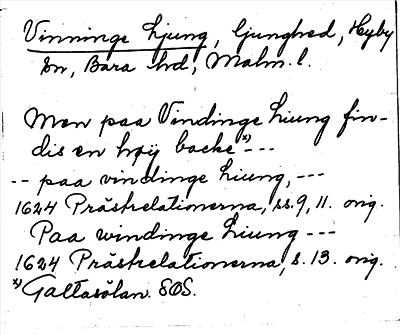 Vinninge Ljung, Ljunghed, Hyby
sn, Bara hd, Malm. l.
Men paa Vindinge Liung fin-
dis en høÿ backe*) ---
-- paa vindinge Liung, ---
1624 Prästrelationerna, ss. 9, 11. orig.
Paa windinge Liung ---
1624 Prästrelationerna, s. 13. orig.
*) Galtasölan. SOS.